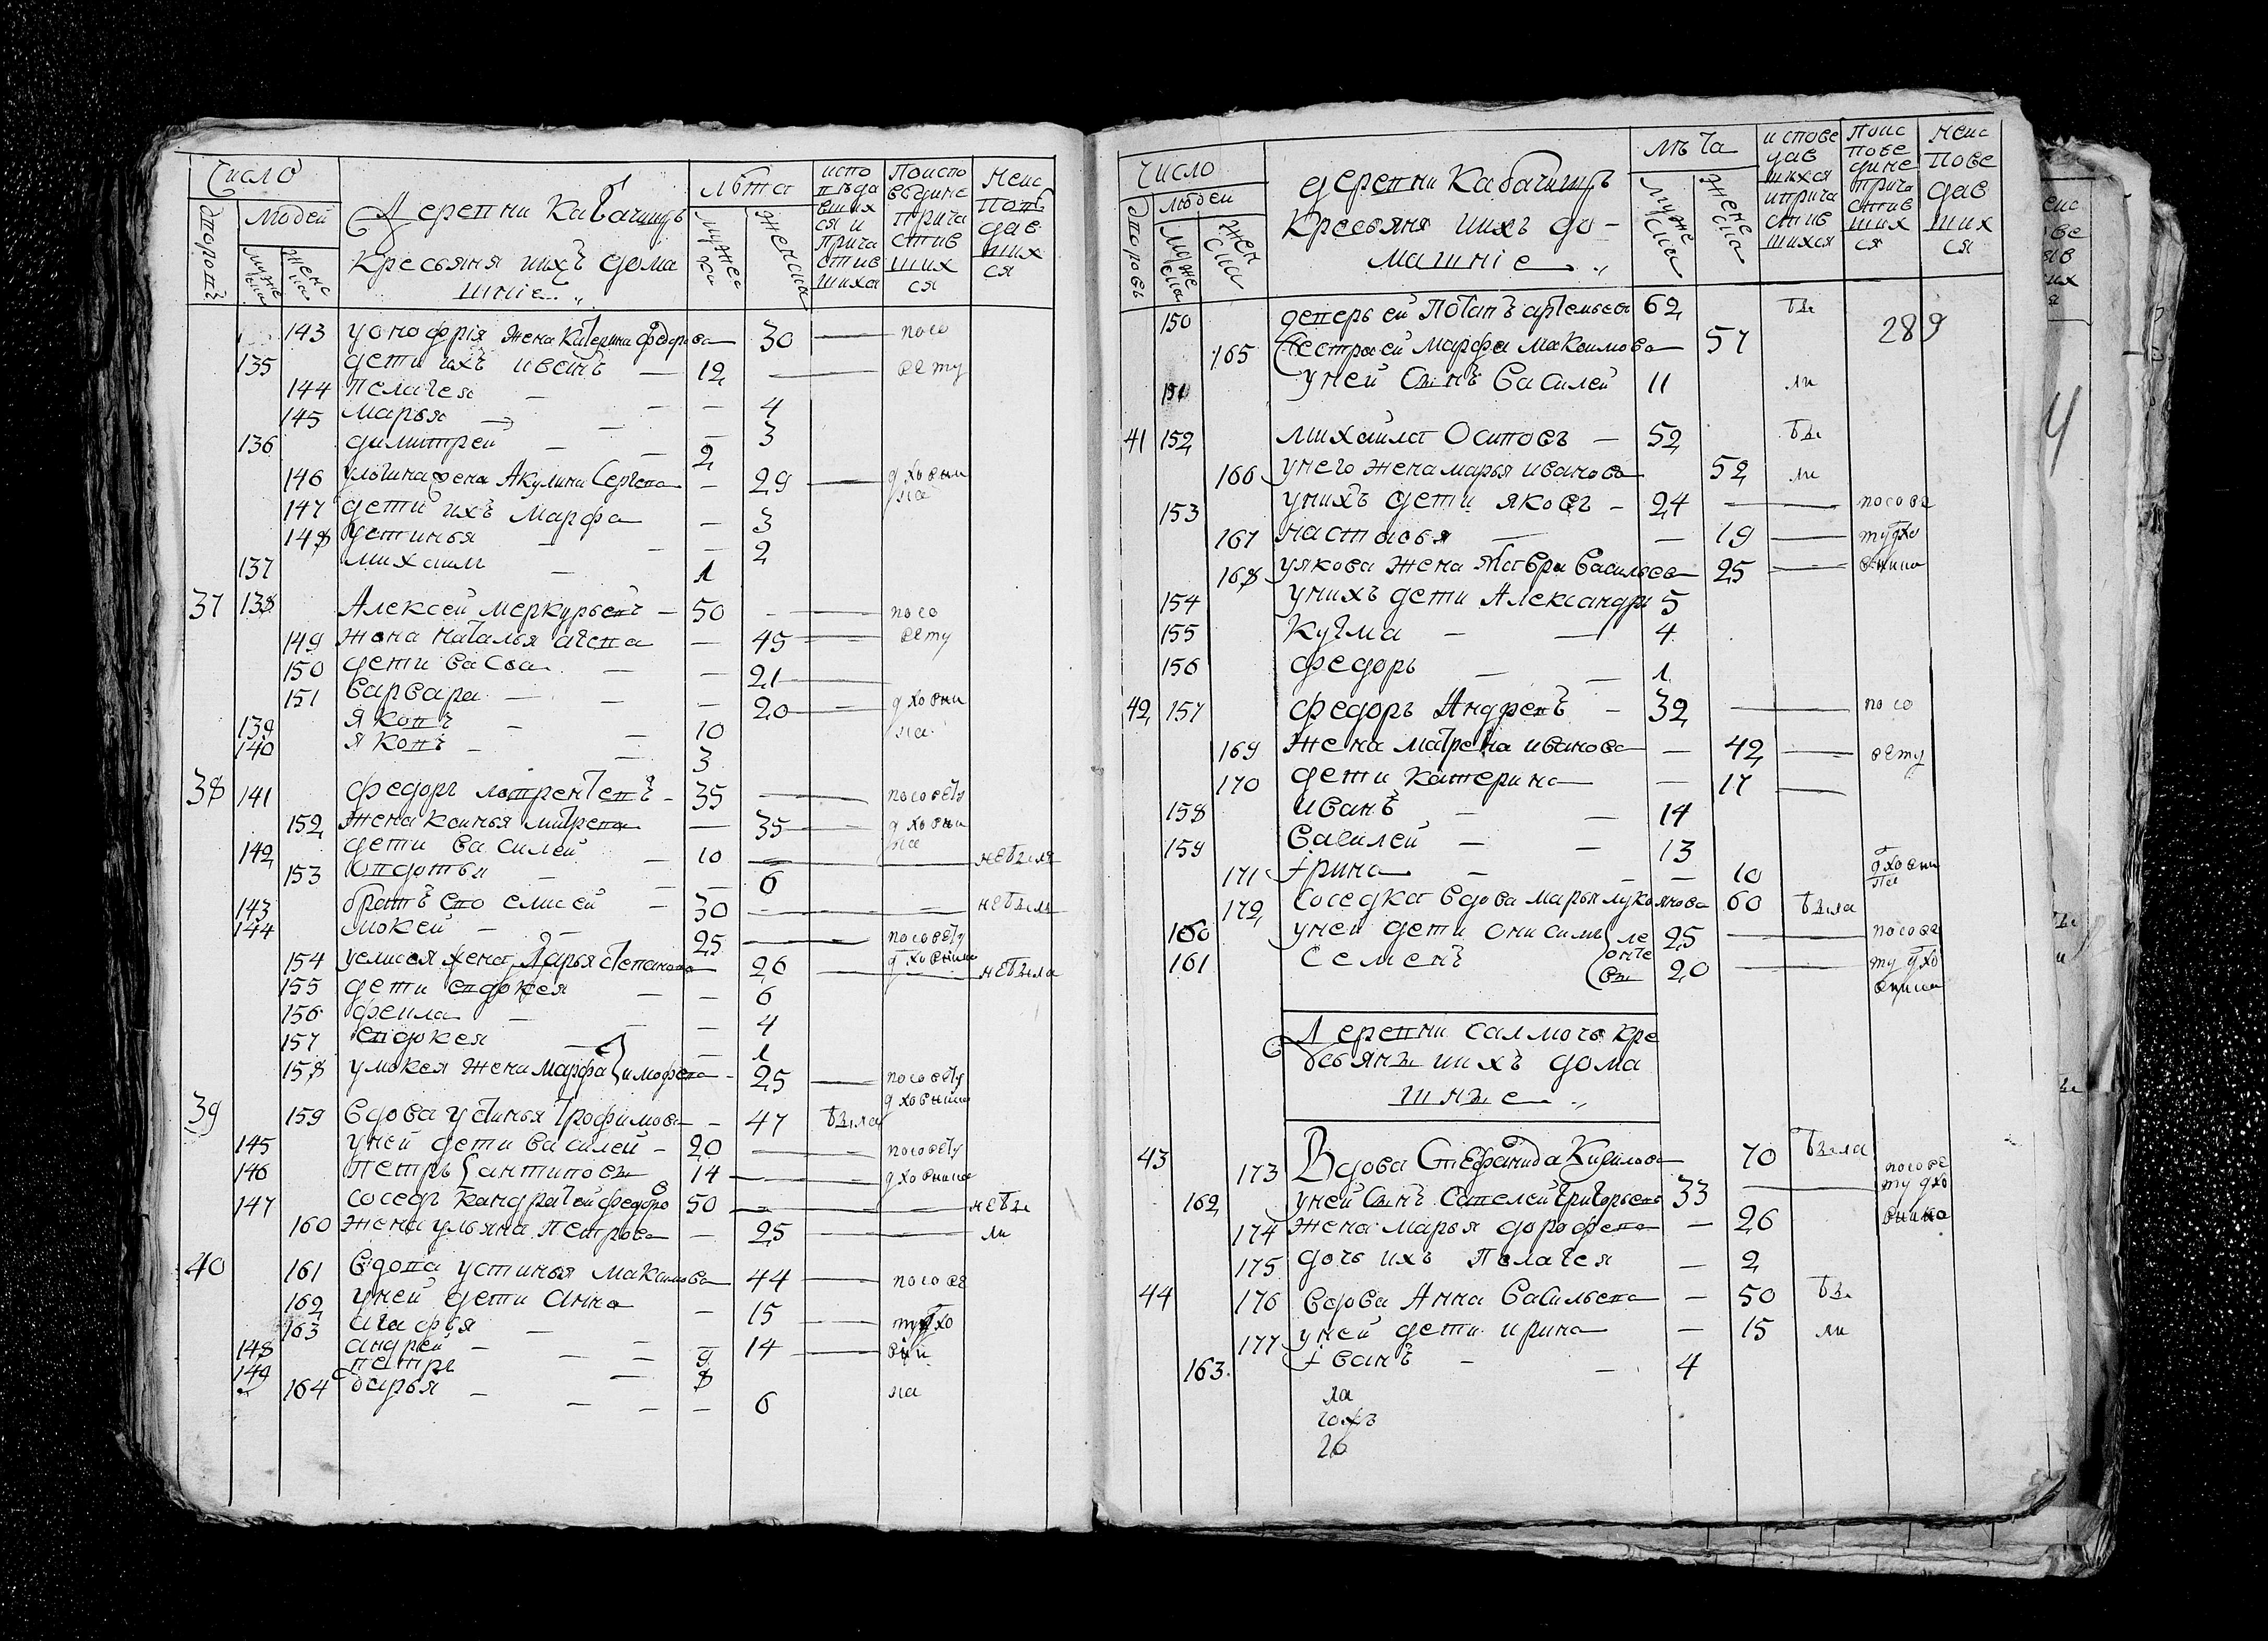 Число
дворовъ
людей
муже ска
женс ка
Деревни Кабачищъ
крестьяня ихъ дома
шніе
лѣта
муже ска
женска
испо вѣда вших ся и прича стив шихся
по испо вѣдине прича стив ших ся
неис повѣ дав ших ся
143 у онофрія жена Катерина Федорова — 30 — посо
135 дети ихъ иванъ — 12 — вету
144 пелагея — — 4
145 марья — — 3
136 димитрей — 2
146 жена Акулина Сергева — 29 — дховни ка
147 дети ихъ Марфа — 3
148 устинья — — 2
137 михаилъ — 1
37 138 Алексей меркурьевъ — 50 — посо
149 жена наталья — 45 — вету
150 дети васса — 21
151 варвара — 20 — дховни ка
139 яковъ — 10
140 яковъ — 3
38 141 федоръ лаврентевъ — 35 — посовету
152 жена ксинья — 35 — дховни ка
142 дети василей — 10 — небыля
153 — 6
143 братъ ево елисей — 30 — небыля
144 мокей — 25 — посовету
154 у елисея жена Дарья степанова — 26 — дховника — небыла
155 дети евдокея — 6
156 фекла — 4
157 евдокея — 1
158 у мокея жена марфа тимофева — 25 — посовету
дховника
39 159 вдова устинья трофимова — 47 была
145 у ней дети василей — 20 — посовету
146 петръ антиповы 14 — дховника
147 соседъ кандратей федоро 50 — небы
160 жена ульяна петрова — 25 — ли
40 161 вдова устинья максимова 44 — посове
162 у ней дети анна — 15 — тудхо
163 агафья — 14 — вни
148 андрей — 9
149 петръ — 8
164 дарья — 6 ка
число
дворовъ
людей
муже ска
жен ска
деревни Кабачищъ
кресьяня ихъ до-
машніе
лѣта
муже ска
женс ка
испове дав шихся и прича стив шихся
по ис пове дине прича стив ших ся
неис пове дав ших ся
289
150 деверь ей Потапъ артемьевъ 62 бы
165 сестра ей марфа максимова 57
151 у ней сынъ василей 11 ли
41 152 михаила Осиповъ — 52 бы
166 у него жена марья иванова 52 ли
153 у нихъ дети яковъ — 24 — посове
167 настасья — 19 — тудхо
168 у якова жена мавра васильева 25 — вника
154 у нихъ дети Александръ 5
155 кузма — 4
156 федоръ — 1
42 157 федоръ Андревъ — 32 — посо
169 жена матрена иванова — 42 — вету
170 дети катерина — 17
158 иванъ — 14
159 василей — 13
171 ирина — 10 дховни ка
172 соседка вдова марья лукоянова 60 была
160 у ней дети онисимъ ле 25 — посове
161 семенъ онте вы 20 — ту дхо
вника
Деревни салмочь кре
сьяны ихъ дома
шные
43 173 Вдова Стефанида Кирилова 70 была посове
162 у ней сынъ савелей григорьевъ 33 — ту дхо
174 жена марья дорофева — 26 вника
175 дочь ихъ пелагея — 2
44 176 вдова Анна васильева — 50 бы
177 у ней дети ирина — 15 ли
163 иванъ — 4